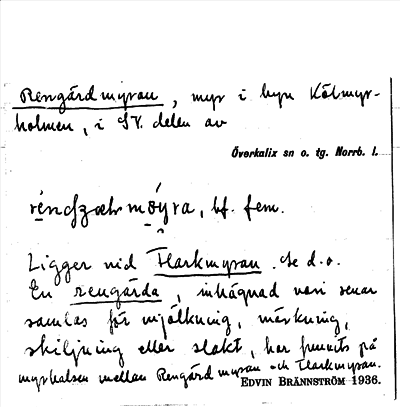 Rengårdmyran, myr i byn Kölmyr-
holmen, i SV. delen av
Överkalix sn o. tg. Norrb. l.
bf. fem.
Ligger vid Flarkmyran. Se d.o.
En rengärda, inhägnad vari renar
samlas för mjölkning, märkning,
skiljning eller slakt, har funnits på
myrhalsen mellan Rengårdmyran och Flarkmyran.
EDVIN BRÄNNSTRÖM 1936.